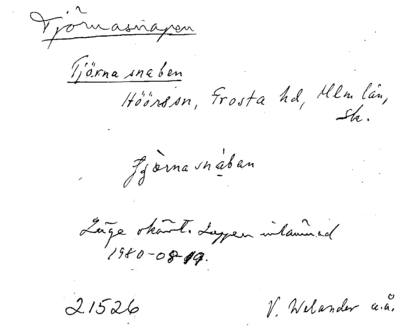 Tjörnasnapen
Tjörnasnaben
Höörs sn, Frosta hd, Mlm län,
Sk.
Läge okänt. Lappen inlämnad
1980-08-19.
21526
V. Welander u.å.